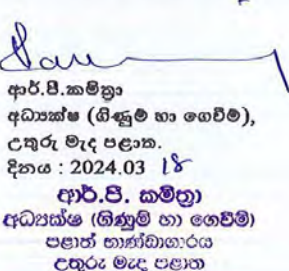 ආර්.පී.කමිත්‍රා
අධ්‍යක්ෂ (ගිණුම් හා ගෙවීම්),
උතුරු මැද පළාත.
දිනය : 2024.03 18
ආර්.පී. කමිත්‍රා
අධ්‍යක්ෂ (ගිණුම් හා ගෙවීම්)
පළාත් භාණ්ඩාගාරය
උතුරු මැද පළාත